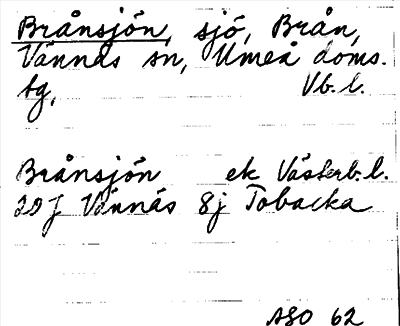 Brånsjön, sjö, Brån,
Vännäs sn, Umeå doms.
tg, Vb. l.
Brånsjön ek Västerb. l.
20J Vännäs 8j Tobacka
ASO 62